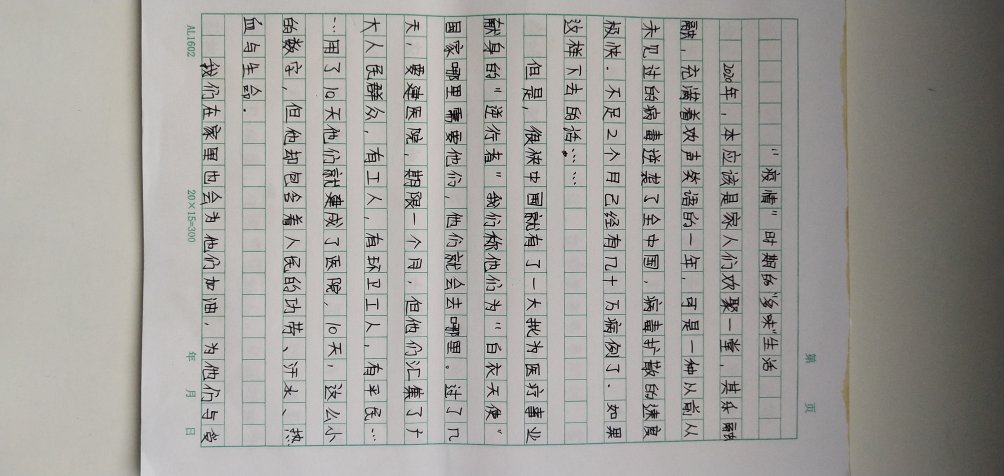 第 页
"疫情"时期的"多味"生活
2020年，本应该是家人们欢聚一堂，其乐融
融，充满着欢声笑语的一年，可是一种从前从
未见过的病毒逆袭了全中国，病毒扩散的速度
极快．不足2个月已经有几十万病例了．如果
这样下去的话……
但是，很快中国就有了一大批为医疗事业
献身的"逆行者"我们称他们为"白衣天使"
国家哪里需要他们，他们就会去哪里。过了几
天，要建医院，期限一个月，但他们汇集了广
大人民群众，有工人，有环卫工人，有平民…
…用了10天他们就建成了医院，10天，这么小
的数字，但他却包含着人民的功劳、汗水、热
血与生命．
我们在家里也会为他们加油，为他们与
AL1602 20×15=300 年 月 日